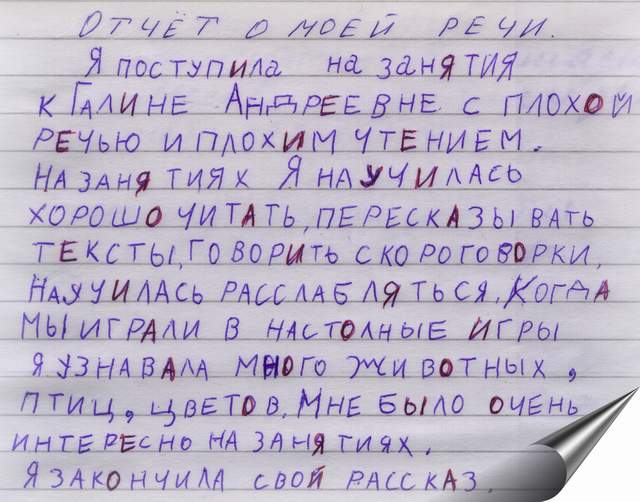 ОТЧЁТ О МОЕЙ РЕЧИ.
Я ПОСТУПИЛА НА ЗАНЯТИЯ
К ГАЛИНЕ АНДРЕЕВНЕ С ПЛОХОЙ
РЕЧЬЮ И ПЛОХИМ ЧТЕНИЕМ.
НА ЗАНЯТИЯХ Я НАУЧИЛАСЬ
ХОРОШО ЧИТАТЬ, ПЕРЕСКАЗЫВАТЬ
ТЕКСТЫ, ГОВОРИТЬ СКОРОГОВОРКИ,
НАУЧИЛАСЬ РАССЛАБЛЯТЬСЯ. КОГДА
МЫ ИГРАЛИ В НАСТОЛНЫЕ ИГРЫ
Я УЗНАВАЛА МНОГО ЖИВОТНЫХ,
ПТИЦ, ЦВЕТОВ. МНЕ БЫЛО ОЧЕНЬ
ИНТЕРЕСНО НА ЗАНЯТИЯХ.
Я ЗАКОНЧИЛА СВОЙ РАССКАЗ.